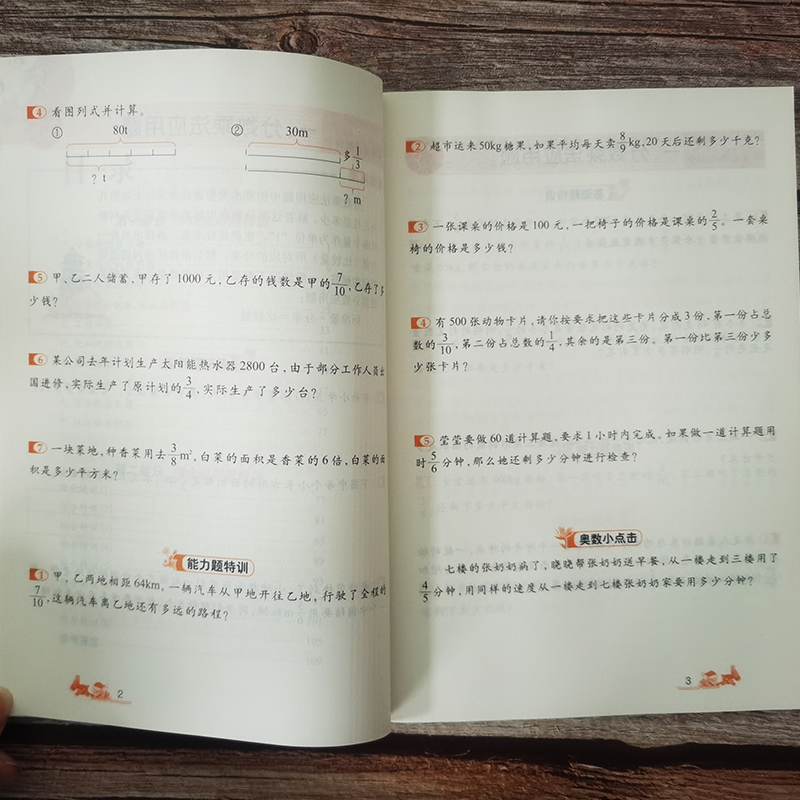 4 看图列式并计算。
① 80t ② 30m
多1/3
? t ? m
5 甲、乙二人储蓄，甲存了 1000 元，乙存的钱数是甲的7/10，乙存了多
少钱？
6 某公司去年计划生产太阳能热水器 2800 台，由于部分工作人员出
国进修，实际生产了原计划的3/4，实际生产了多少台？
7 一块菜地，种香菜用去3/8m²，白菜的面积是香菜的 6 倍，白菜的面
积是多少平方米？
能力题特训
1 甲、乙两地相距 64km，一辆汽车从甲地开往乙地，行驶了全程的
7/10，这辆汽车离乙地还有多远的路程？
2
2 超市运来 50kg 糖果，如果平均每天卖8/9kg，20 天后还剩多少千克？
3 一张课桌的价格是 100 元，一把椅子的价格是课桌的2/5。一套桌
椅的价格是多少钱？
4 有 500 张动物卡片，请你按要求把这些卡片分成 3 份，第一份占总
数的3/10，第二份占总数的1/4，其余的是第三份。第一份比第三份少多
少张卡片？
5 莹莹要做 60 道计算题，要求 1 小时内完成。如果做一道计算题用
时5/6分钟，那么她还剩多少分钟进行检查？
奥数小点击
七楼的张奶奶病了，晓晓帮张奶奶送早餐，从一楼走到三楼用了
4/5分钟，用同样的速度从一楼走到七楼张奶奶家要用多少分钟？
3